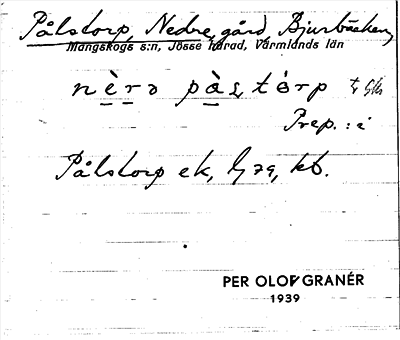 Pålstorp, Nedre, gård, Bjurbäcken,
Mangskogs s:n, Jösse härad, Värmlands län
nèrə pàstórp
Prep. : i
Pålstorp ek, kb.
PER OLOF GRANÉR
1939